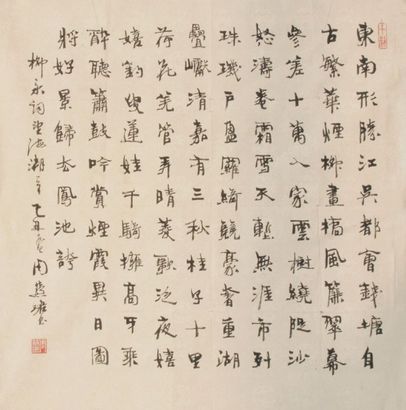 東南形勝江吳都會錢塘自
古繁華煙柳畫橋風簾翠幕
參差十萬人家雲樹繞隄沙
怒濤卷霜雪天塹無涯市列
珠璣戶盈羅綺競豪奢重湖
疊巘清嘉有三秋桂子十里
荷花羌管弄晴菱歌泛夜嬉
嬉釣叟蓮娃千騎擁高牙乘
醉聽簫鼓吟賞煙霞異日圖
將好景歸去鳳池誇
柳永詞望海潮 丑 周